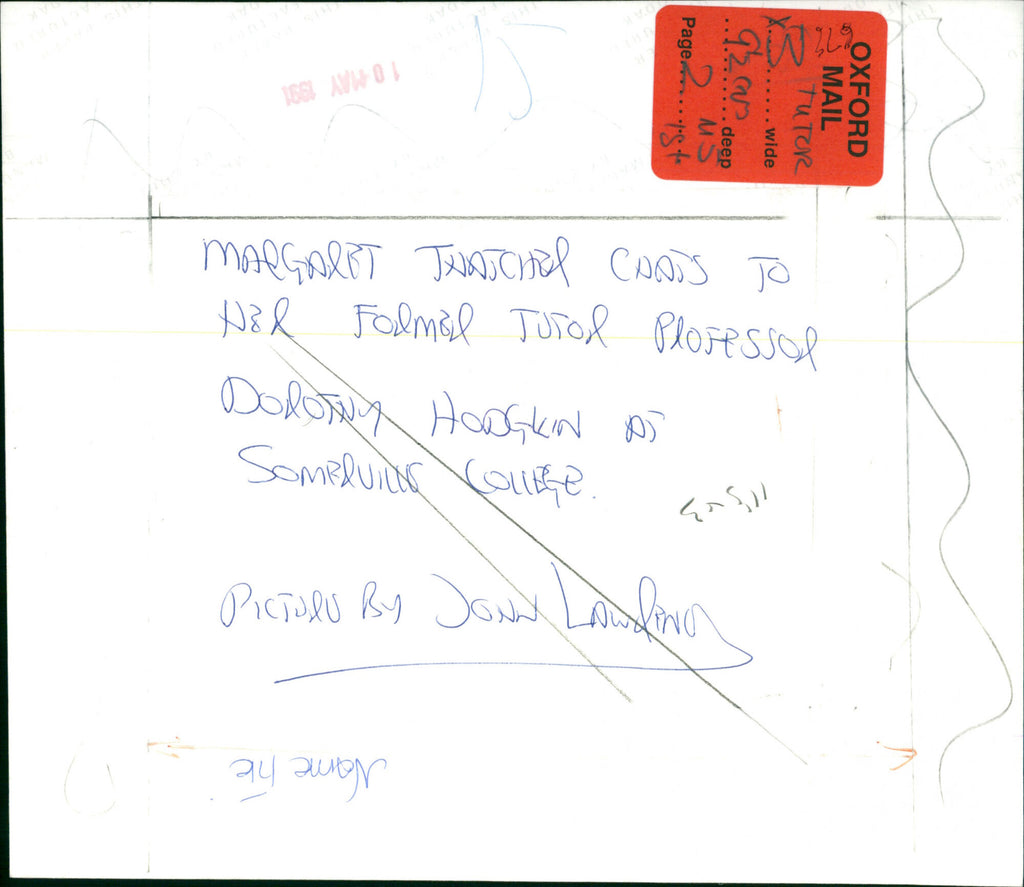 15
10 MAY 1991
OXFORD
MAIL
X3 TUTOR
wide
9½ cms deep
Page 2 MS
1st
MARGARET THATCHER CHATS TO
HER FORMER TUTOR PROFESSOR
DOROTHY HODGKIN AT
SOMERVILLE COLLEGE.
PICTURE BY JOHN LAWRENCE
Name file